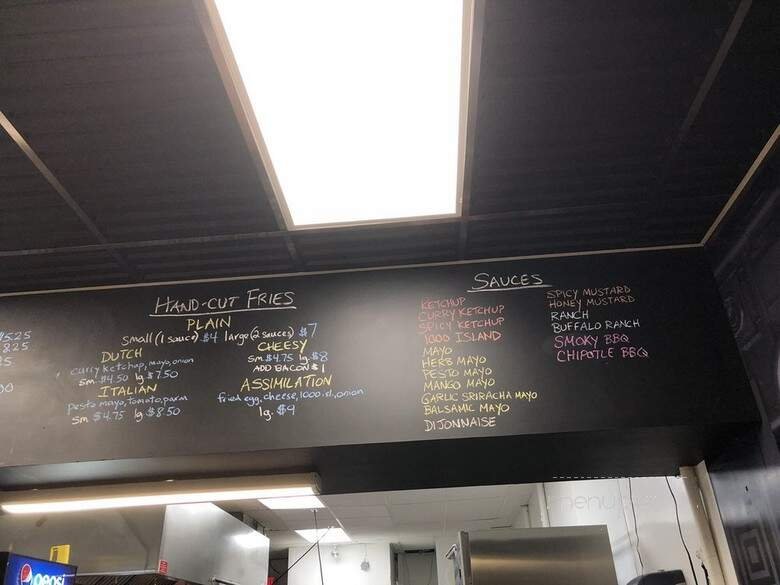 HAND-CUT FRIES
PLAIN
small (1 sauce) $4 large (2 sauces) $7
DUTCH
curry ketchup, mayo, onion
sm $4.50 lg $7.50
ITALIAN
pesto mayo, tomato, parm
sm $4.75 lg $8.50
CHEESY
sm $4.75 lg $8
ADD BACON $1
ASSIMILATION
fried egg, cheese, 1000 isl, onion
lg. $9
SAUCES
KETCHUP
CURRY KETCHUP
SPICY KETCHUP
1000 ISLAND
MAYO
HERB MAYO
PESTO MAYO
MANGO MAYO
GARLIC SRIRACHA MAYO
BALSAMIC MAYO
DIJONNAISE
SPICY MUSTARD
HONEY MUSTARD
RANCH
BUFFALO RANCH
SMOKY BBQ
CHIPOTLE BBQ
pepsi